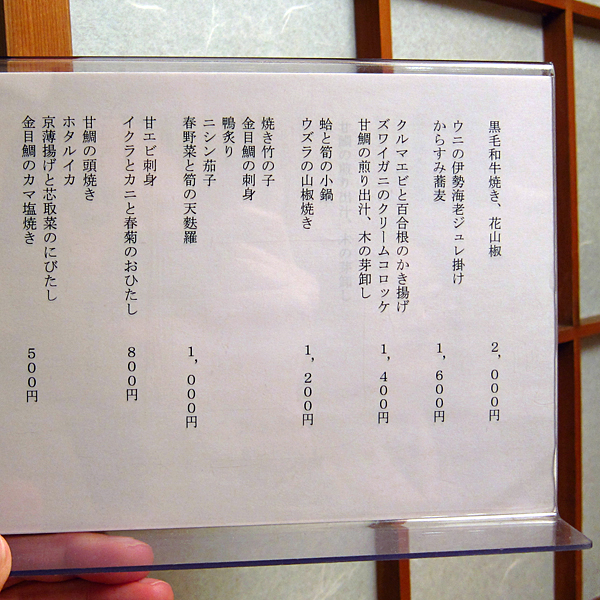 黒毛和牛焼き、花山椒 2,000円
ウニの伊勢海老ジュレ掛け
からすみ蕎麦 1,600円
クルマエビと百合根のかき揚げ
ズワイガニのクリームコロッケ
甘鯛の煎り出汁、木の芽卸し 1,400円
蛤と筍の小鍋
ウズラの山椒焼き 1,200円
焼き竹の子
金目鯛の刺身
鴨炙り
ニシン茄子
春野菜と筍の天麩羅 1,000円
甘エビ刺身
イクラとカニと春菊のおひたし 800円
甘鯛の頭焼き
ホタルイカ
京薄揚げと芯取菜のにびたし
金目鯛のカマ塩焼き 500円